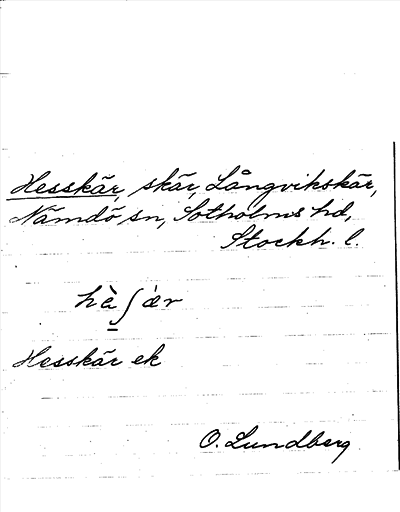 Hesskär, skär, Långvikskär,
Nämdö sn, Sotholms hd,
Stockh. l.
hæ̀ʃær
Hesskär ek
O. Lundberg